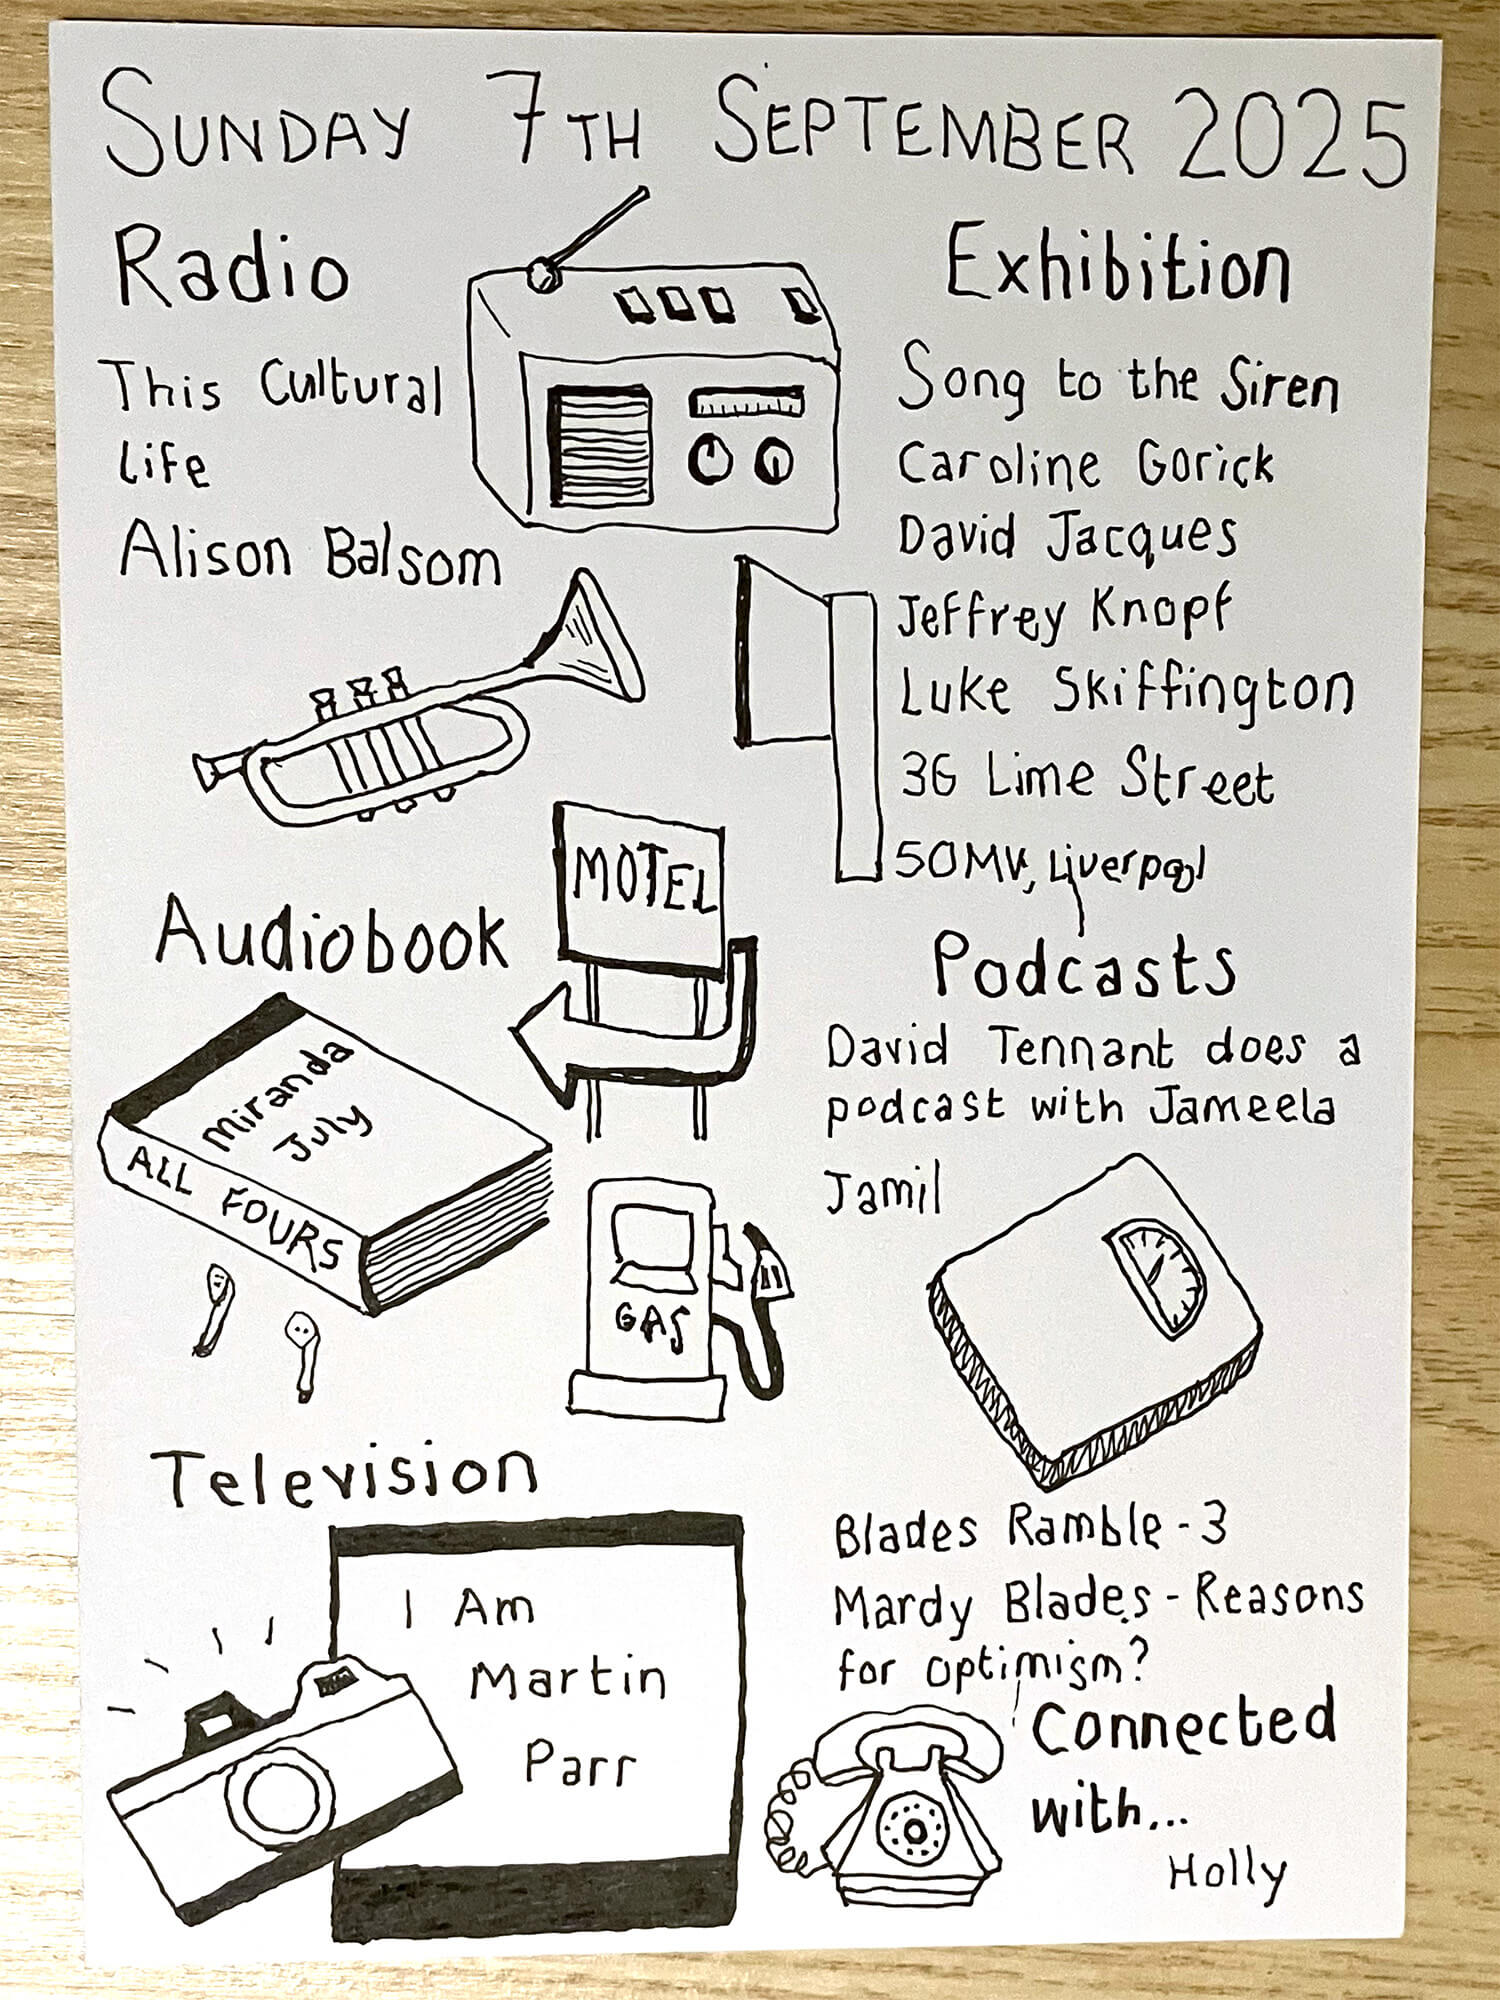 SUNDAY 7TH SEPTEMBER 2025
Radio
This Cultural
Life
Alison Balsom
Exhibition
Song to the Siren
Caroline Gorick
David Jacques
Jeffrey Knopf
Luke Skiffington
36 Lime Street
50MV, Liverpool
MOTEL
Audiobook
Miranda
July
ALL FOURS
GAS
Podcasts
David Tennant does a
podcast with Jameela
Jamil
Television
I Am
Martin
Parr
Blades Ramble - 3
Mardy Blades - Reasons
for optimism?
Connected
with...
Holly